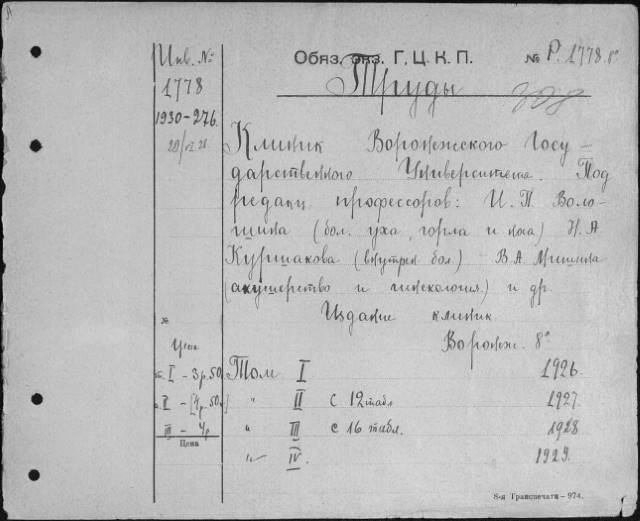 Инв. №
1778
1930-276.
Обяз. экз. Г. Ц. К. П.
№ Р. 1778.
Труды
Клиник Воронежского Госу-
дарственного Университета. Под
редакц. профессоров: И. П. Воло-
шина (бол. уха, горла и носа) Н. А
Куршакова (внутрен бол) В. А. Мишина
(акушерство и гинекология) и др
Издание клиник
Воронеж. 8°
№
Цена
I - 3 р. 50
Том I 1926.
II - [4 р. 50
" II с 12 табл 1927.
III - 4 р
" III с 16 табл. 1928
Цена
" IV. 1929.
8-я Транспечати - 974.